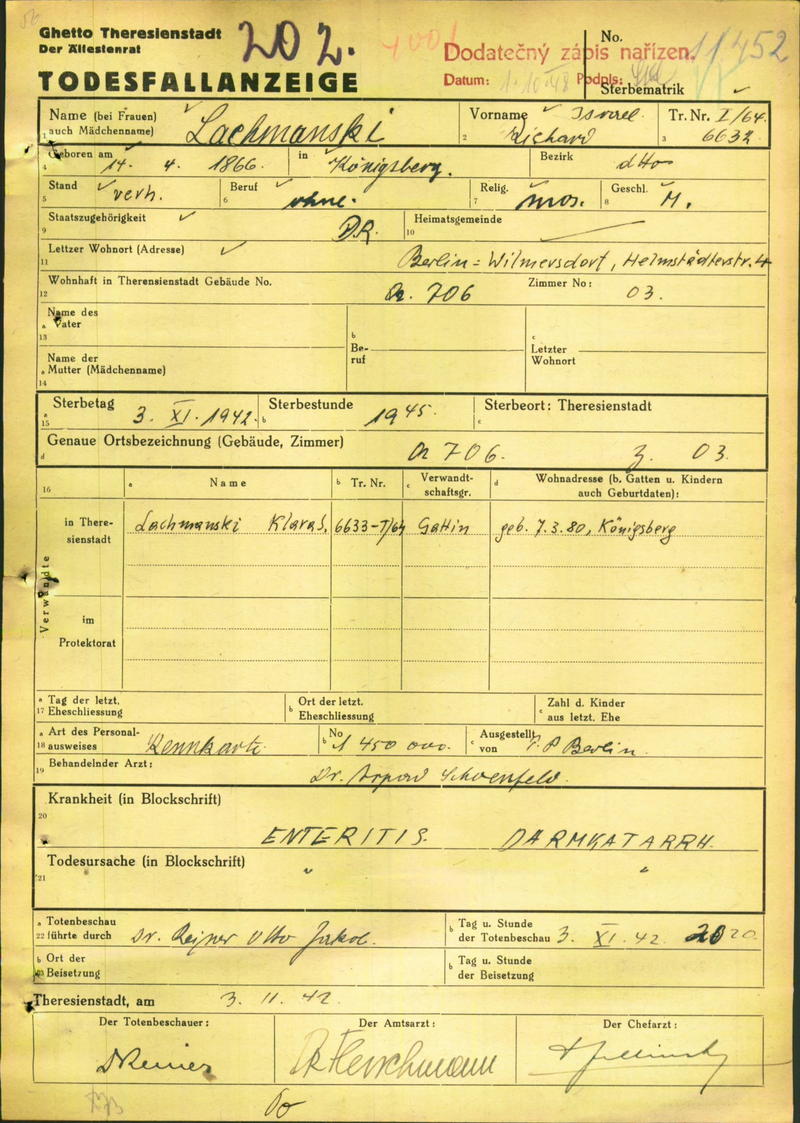 Ghetto Theresienstadt
Der Ältestenrat
202.
TODESFALLANZEIGE
Dodatečný zápis nařízen.
Datum: 1.10.48 Podpis:
No. 11452
Sterbematrik
Name (bei Frauen) auch Mädchenname) Lachmanski
Vorname Israel Richard
Tr. Nr. I/64. 6632
1 2 3
Geboren am 14. 4. 1866. in Königsberg. Bezirk dtto
4
Stand verh. Beruf ohne. Relig. mos. Geschl. M.
5 6 7 8
Staatszugehörigkeit D.R. Heimatsgemeinde
9 10
Lettzer Wohnort (Adresse) Berlin=Wilmersdorf, Helmstädterstr. 4
11
Wohnhaft in Therensienstadt Gebäude No. 706 Zimmer No: 03.
12
Name des Vater
a 13
b Be-ruf
c Letzter Wohnort
Name der Mutter (Mädchenname)
a 14
Sterbetag 3. XI. 1942. Sterbestunde 19 45. Sterbeort: Theresienstadt
a 15 b c
Genaue Ortsbezeichnung (Gebäude, Zimmer) 706. Z. 03.
d
16 a Name b Tr. Nr. c Verwandt-schaftsgr. d Wohnadresse (b. Gatten u. Kindern auch Geburtdaten):
Verwandte
in There-sienstadt Lachmanski Klara S. 6633-I/64 Gattin geb. 7.3.80, Königsberg
im Protektorat
a 17 Tag der letzt. Eheschliessung
b Ort der letzt. Eheschliessung
c Zahl d. Kinder aus letzt. Ehe
a 18 Art des Personal-ausweises Kennkarte b No 1 450 000. c Ausgestellt von P.P Berlin.
19 Behandelnder Arzt: Dr. Arpad Schoenfeld.
Krankheit (in Blockschrift)
20
ENTERITIS. DARMKATARRH.
Todesursache (in Blockschrift) " "
21
a 22 Totenbeschau führte durch Dr. Reiner Otto Jakob. b Tag u. Stunde der Totenbeschau 3. XI. 42. 20 20
b 23 Ort der Beisetzung
b Tag u. Stunde der Beisetzung
Theresienstadt, am 3. 11. 42.
Der Totenbeschauer: Der Amtsarzt: Der Chefarzt:
DReiner